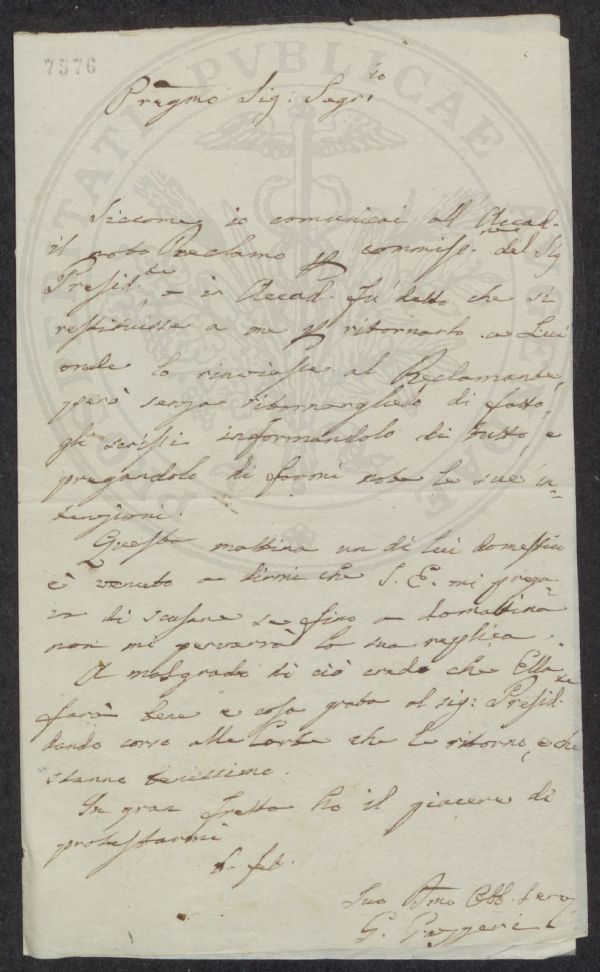 7576
Pregmo Sig: Segrio
Siccome io comunicai all' Accad.
il noto Reclamo p commiss.ne del Sig
Presid.te, e in Accad. fu detto che si
restituisse a me p ritornarlo a Lui
onde lo rinviasse al Reclamante,
però senza ritornarglielo di fatto,
gli scrissi informandolo di tutto, e
pregandolo di farmi note le sue in-
tenzioni.
Questa mattina un di lui domestico
è venuto a dirmi che S. E. mi prega-
va di scusare se fino a domattina
non mi perverrà la sua replica.
A malgrado di ciò credo che Ella
farà bene e cosa grata al sig: Presid.te
dando corso alle Carte che le ritorno, e che
stanno benissimo.
In gran fretta ho il piacere di
protestarmi
feb.
Suo Dmo Obb. serv.
G. Gazzeri
PUBLICAE